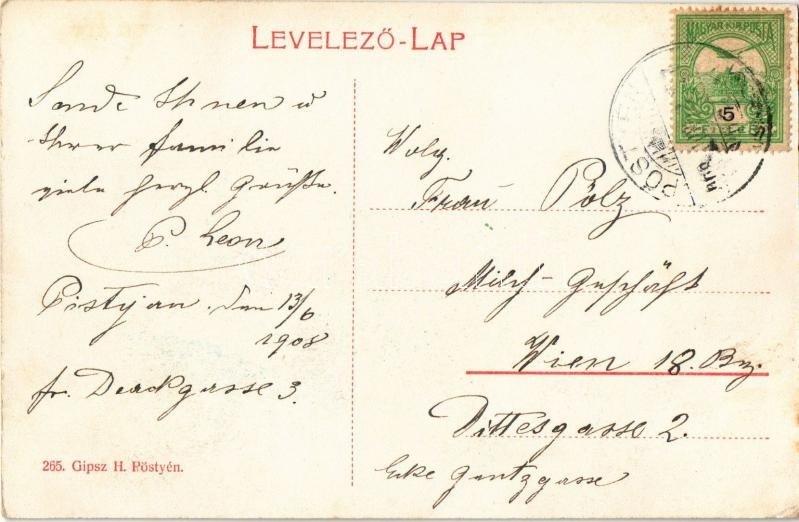 LEVELEZŐ-LAP
MAGYAR KIR. POSTA
5
Sende Ihnen u
Ihrer familie
viele herzl. Grüße.
P. Leon
Pistyan. den 13/6
1908
fr. Deackgasse 3.
Wolg.
Frau Pölz
Milch-Geschäft
Wien 18. Bz.
Dittesgasse 2.
Ecke Gentzgasse
265. Gipsz H. Pöstyén.